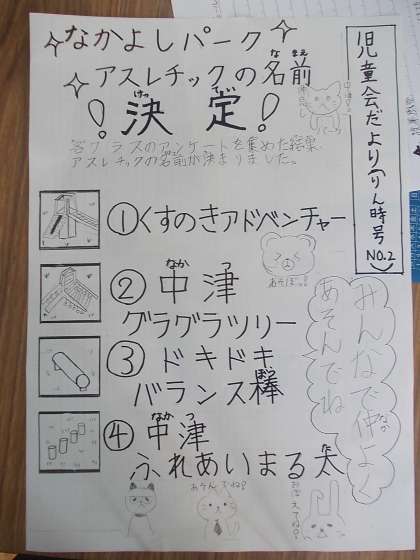 児童会だより(りん時号 NO.2)
なかよしパーク
アスレチックの名前
なまえ
！決定！
けってい
各クラスのアンケートを集めた結果、
アスレチックの名前が決まりました。
①くすのきアドベンチャー
②中津
なかつ
グラグラツリー
あそぼっ!
③ドキドキ
バランス棒
ぼう
④中津
なかつ
ふれあいまる太
た
みんなで仲よく
なか
あそんでね
あそんでね!
おぼえてね!